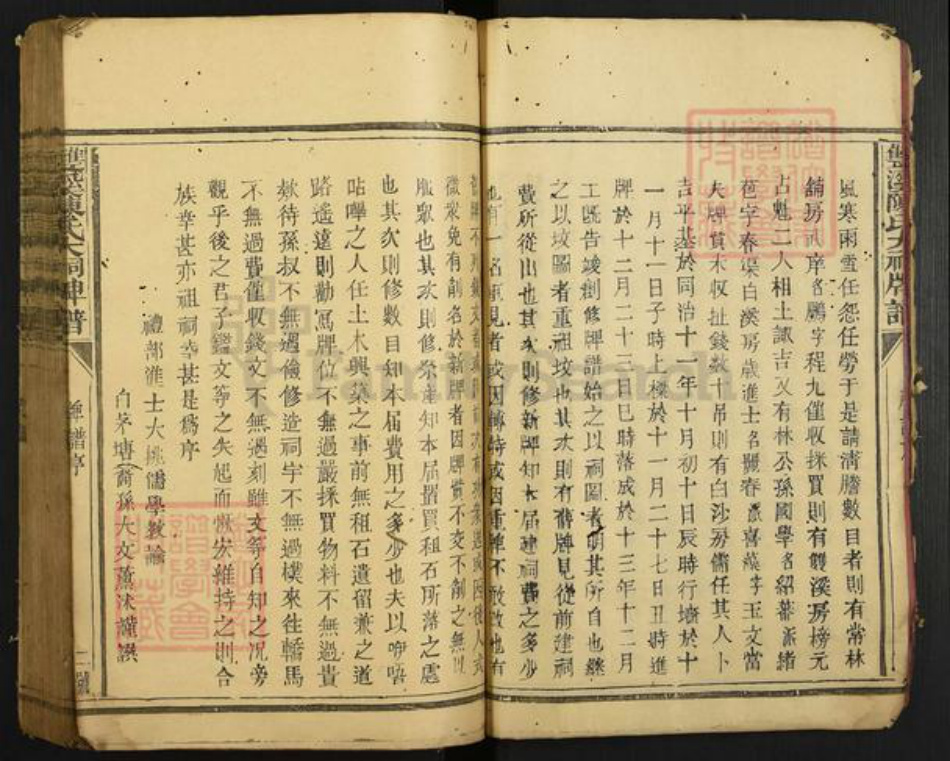 風寒雨雪任怨任勞于是請清謄數目者則有常林
舖房八庠名鵬字程九僅收採買則有雙溪房榜元
占魁二人相土諏吉又有林公孫國學名紹蕃派緒
苞字春渠白溪房歲進士名騣春派喜藻字玉文當
大牌貲木收扯錢數十吊則有白沙房傭任其人卜
吉平基於同治十一年十月初十日辰時行墻於十
一月十一日子時上樑於十一月二十七日丑時進
牌於十二月二十三日巳時落成於十三年十二月
工既告竣創修牌譜始之以祠圖者明其所自也繼
之以坟圖者重祖坟也其次則有舊牌見從前建祠
費所從出也其次則修新牌知本届建祠費之多少
也有一名重見者或因傳特或因重牌不敢改也有
微眾免有削名於新牌者因牌貲不交不削之無以
服眾也其次則修祭產知本届揩買租石所落之處
也其次則修數目知本届費用之多少也夫以咿唔
呫嗶之人任土木興築之事前無租石遺留兼之道
路遙遠則勸寫牌位不無過嚴採買物料不無過貴
欵待孫叔不無過儉修造祠宇不無過樸來往轎馬
不無過費僅收錢文不無過刻雖文等自知之况旁
觀乎後之君子鑑文等之失起而恢宏維持之則合
族幸甚亦祖祠幸甚是爲序
禮部進士大挑儒學教諭
白茅塘裔孫大文薰沐謹譔
豐溪陳氏大祠牌譜
牌譜序
二
豐溪陳氏大祠牌譜
FamilySearch